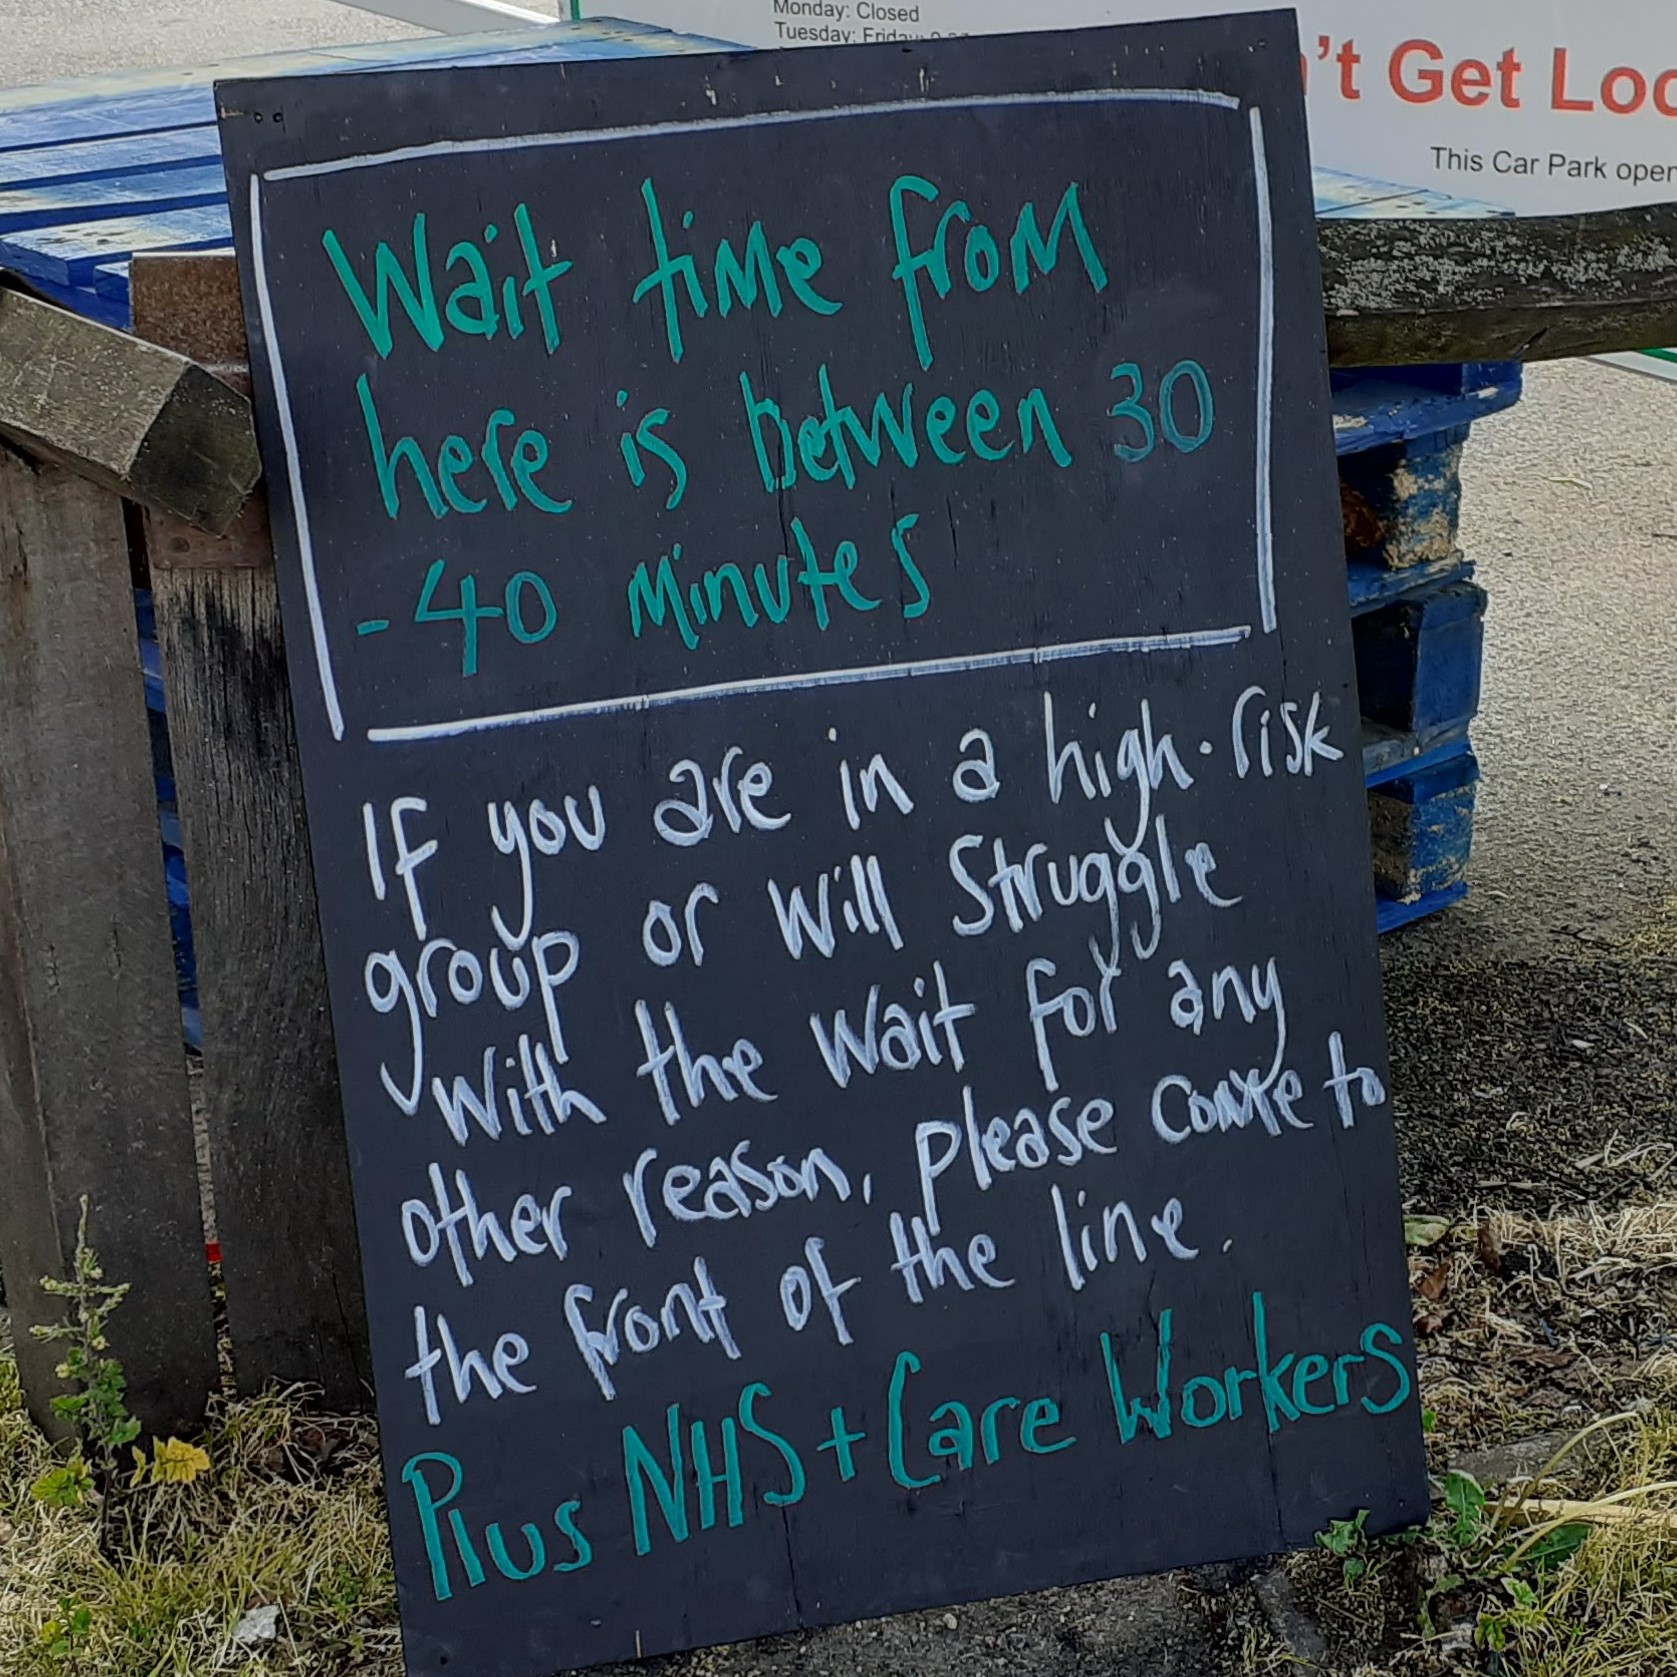 Monday: Closed
Tuesday: Friday:
't Get Loc
This Car Park open
Wait time from
here is between 30
- 40 minutes
If you are in a high-risk
group or will struggle
with the wait for any
other reason, please come to
the front of the line.
Plus NHS + Care Workers